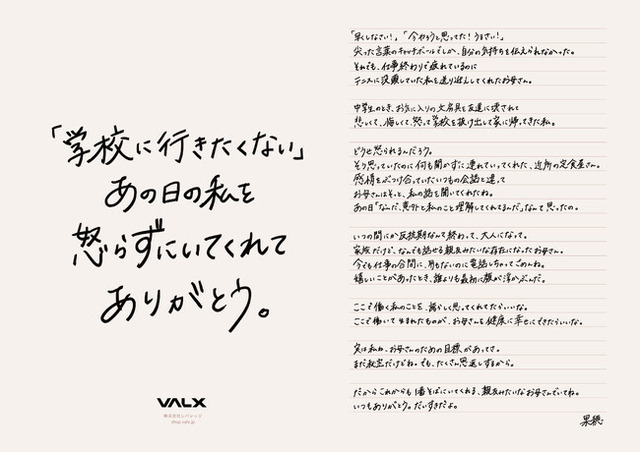 「学校に行きたくない」
あの日の私を
怒らずにいてくれて
ありがとう。
VALX
株式会社レバレッジ
shop.valx.jp
「早くしなさい！」「今やろうと思ってた！うるさい！」
尖った言葉のキャッチボールでしか、自分の気持ちを伝えられなかった。
それでも、仕事終わりで疲れているのに
テニスに没頭していた私を送り迎えしてくれたお母さん。
中学生のとき、お気に入りの文房具を友達に壊されて
悲しくて、悔しくて、怒って学校を抜け出して家に帰ってきた私。
どうせ怒られるんだろうな。
そう思っていたのに何も聞かずに連れていってくれた、近所の定食屋さん。
感情をぶつけ合っていたいつもの会話と違って
お母さんはそっと、私の話を聞いてくれたね。
あの日「なんだ、意外と私のこと理解してくれてるんだ」なんて思ったの。
いつの間にか反抗期なんて終わって、大人になって。
家族だけど、なんでも話せる親友みたいな存在になったお母さん。
今でも仕事の合間に、用もないのに電話しちゃってごめんね。
嬉しいことがあったとき、誰よりも最初に顔が浮かぶんだ。
ここで働く私のことを、誇らしく思ってくれてたらいいな。
ここで働いて生まれたものが、お母さんを健康に幸せにできたらいいな。
実は私ね、お母さんのための目標があってさ。
まだ秘密だけどね。でも、たくさん恩返しするから。
だからこれからも1番そばにいてくれる、親友みたいなお母さんでいてね。
いつもありがとう。だいすきだよ。
果穂